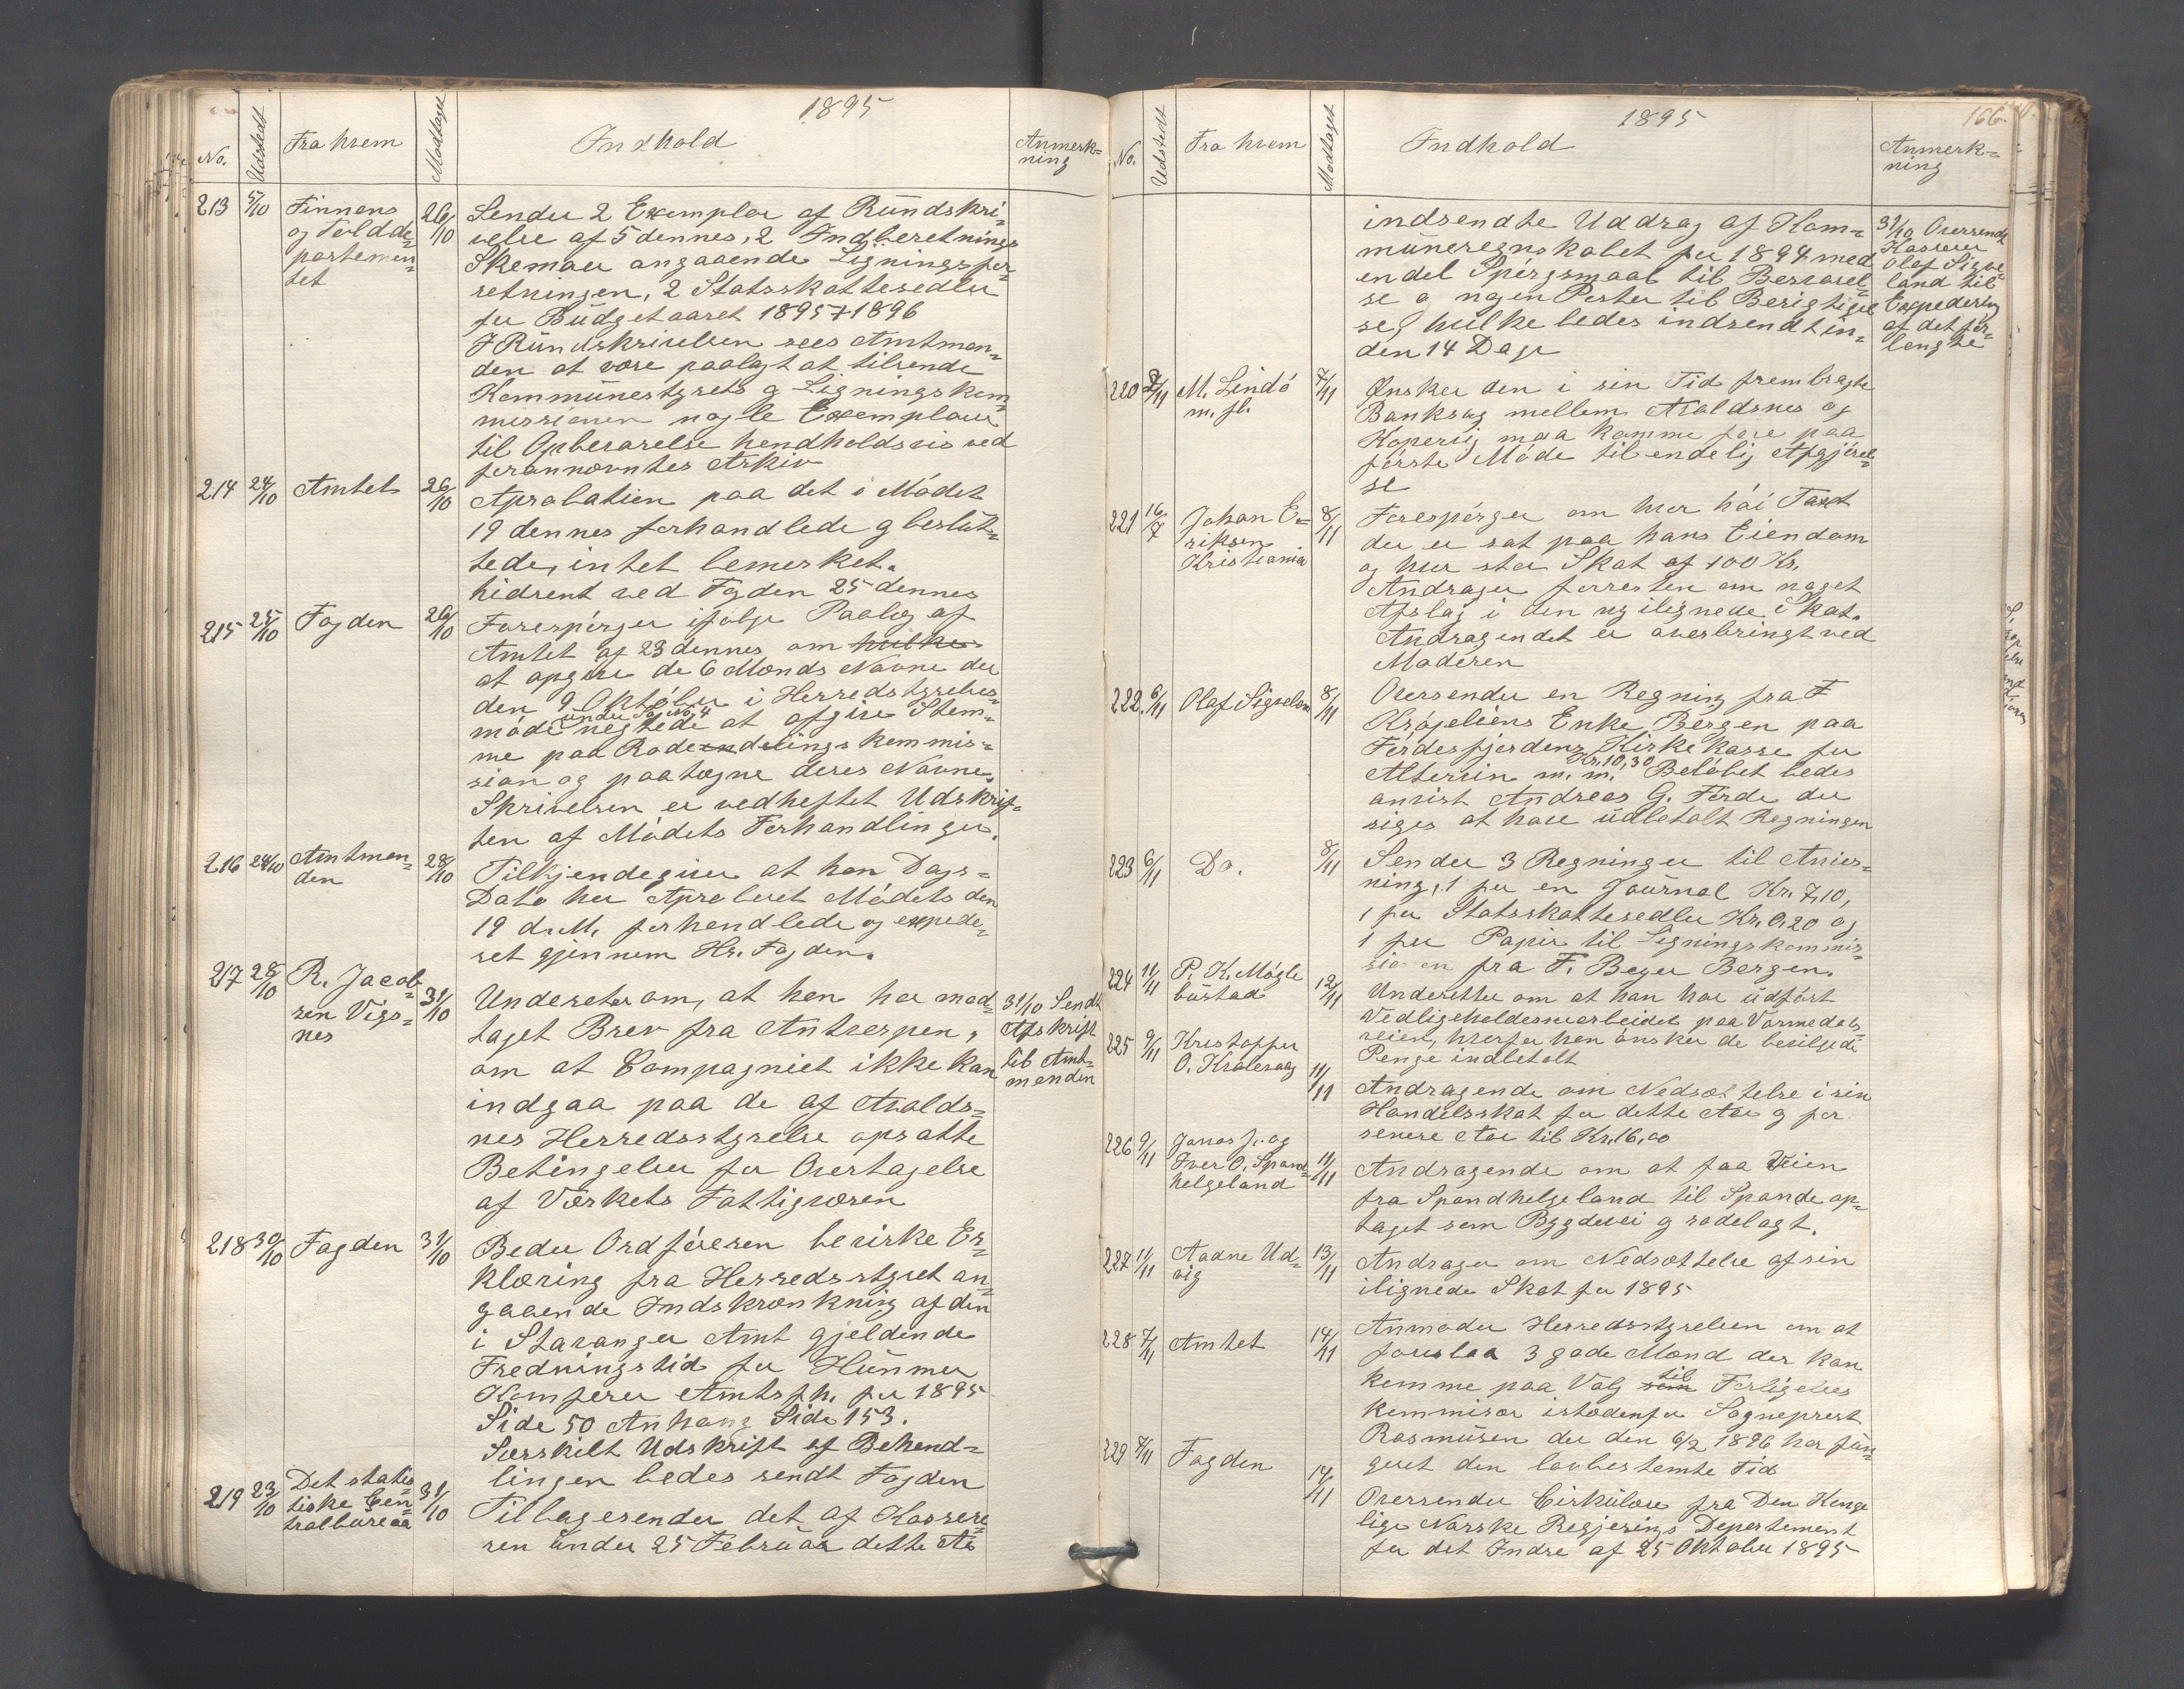 1895
No. Udstedt Fra hvem Modtaget Indhold Anmerk=
ning
213 5/10 Finnans 26/10 Sender 2 Exemplar af Rundskri=
og Toldde= velse af 5 dennes, 2 Indberetnings
partemen= Skemaer angaaende Ligningsfor=
tet retningen, 2 Statsskattesedler
for Budgetaaret 1895+1896
I Rundskrivelsen sees Amtman=
den at være paalagt at tilsende
Kommunestyrets og Ligningskom=
missionen nogle Exemplarer
til Opbevarelse hendholdsvis ved
forannævntes Arkiv
214 24/10 Amtet 26/10 Aprobation paa det i Mødet
19 dennes forhandlede og beslut=
tede, intet bemerket.
hidsent ved Fogden 25 dennes
215 25/10 Fogden 26/10 Forespørger ifølge Paalæg af
Amtet af 23 dennes om hvilke
at opgive de 6 Mænds Navne der
den 9 Oktober i Herredstyrelses
under Sag No. 4
møde negtede at afgive Stem=
me paa Rodeinddelings kommis=
sion og paategne deres Navne.
Skrivelsen er vedheftet Udskrif=
ten af Mødets Forhandlinger.
216 24/10 Amtman= 28/10 Tilkjendegiver at han Dags=
den Dato har Aproberet Mødets den
19 d.M. forhandlede og expede=
ret gjennem Hr. Fogden.
217 28/10 R. Jacob= 31/10 Underretter om, at han har mod= 31/10 Sendt
sen Vigs= taget Brev fra Antverpen, Afskrift
nes om at Compagniet ikke kan til Amt=
indgaa paa de af Avalds= manden
nes Herredsstyrelse opsatte
Betingelser for Overtagelse
af Værkets Fattigvæsen
218 30/10 Fogden 31/10 Beder Ordføreren bevirke Er=
klæring fra Herredsstyret an=
gaaende Indskrænkning af den
i Stavanger Amt gjeldende
Fredningstid for Hummer
Komferer Amtsfh. for 1895
Side 50 Anhang Side 153.
Særskilt Udskrift af Behand=
lingen bedes sendt Fogden
219 23/10 Det statis= 31/10 Tilbagesender det af Kassere=
tiske Cen= ren under 25 Februar dette Aa
tralbureaa
1895 166.
No. Udstedt Fra hvem Modtaget Indhold Anmerk=
ning
indsendte Uddrag af Kom= 31/10 Oversendt
muneregnskabet for 1894 med Kasserer
endel Spørgsmaal til Besvarel= Olaf Sigve=
se og nogen Poster til Berigtigel land til
se, hvilke bedes indsendt in= Expedering
den 14 Dage af det for=
lengte
220 2/11 M. Lindø 7/11 Ønsker den i sin Tid frembragte
m. fl. Banksag mellem Avaldsnes og
Kopervig maa komme fore paa
første Møde til endelig Afgjørel=
se
221 16/7 Johan E= 8/11 Forespørger om hvor høi Taxt
riksen der er sat paa hans Eiendom
Kristiania og hvor stor Skat af 100 Kr.
Andrager forresten om noget
Afslag i den ny ilignede Skat.
Andragendet er overbringt ved
Moderen
222. 6/11 Olaf Sigvelan 8/11 Oversender en Regning fra F
Krøpeliens Enke Bergen paa
Førdesfjordens Kirkekasse for
Kr. 10,30
Altervin m. m. Beløbet bedes
anvist Andreas G. Førde der
siges at have udbetalt Regningen
223 6/11 Do. 8/11 Sender 3 Regninger til Anvis=
ning, 1 for en Journal Kr. 7,10,
1 for Statsskattesedler Kr. 0,20 og
1 for Papir til Ligningskommis=
sionen fra F. Beyer Bergen.
224 11/11 P. K. Møgle 12/11 Underetter om at han har udført
bustad Vedligeholdesesarbeidet paa Vormedals
veien, hvorfor han ønsker de bevilgede
Penge indbetalt
225 9/11 Kristoffer 11/11 Andragende om Nedsættelse i sin
O. Kvalevaag Handelsskat for dette Aar og for
senere Aar til Kr. 16,00
226 9/11 Jonas J. og 11/11 Andragende om at faa Veien
Iver O. Spand= fra Spandhelgeland til Spande op=
helgeland taget som Bygdevei og rodelagt.
227 11/11 Aadne Ud= 13/11 Andrager om Nedsættelse af sin
vig ilignede Skat for 1895
228 7/11 Amtet 14/11 Anmoder Herredsstyrelsen om at
foreslaa 3 gode Mænd der kan
til
komme paa Valg som Forligelses
kommisær istedenfor Sogneprest
Rasmusen der den 6/2 1896 har fun=
geret den lovbestemte Tid
229 7/11 Fogden 14/11 Oversender Cirkulære fra Den Konge
lige Norske Regjerings Departement
for det Indre af 25 Oktober 1895